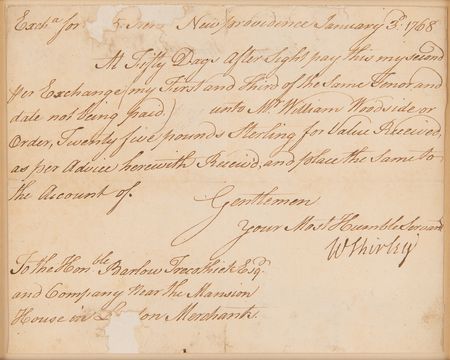 Exch.ᵃ for 5 New providence January 3ᵈ. 1768
At Fifty Days After Sight pay this my Second
Per Exchange (my First and third of the Same Tenor and
date not being paid) unto Mʳ. William Woodside or
Order, Twenty five pounds Sterling for Value Received,
as per Advice herewith Receivd, and place the Same to
the Account of.
Gentlemen
Your Most Humble Servant
WShirley
To the Honᵇˡᵉ Barlow Trecothick Esqʳ.
and Company Near the Mansion
House in L on Merchants.